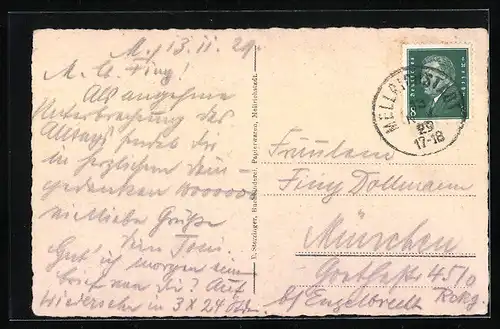 M., 13.II.29.
M. l. Finy!
Als angenehme
Unterbrechung des
Alltags sendet dir
in herzlichem Dein-
gedenken
Grüße
dein Toni.
Gut ich morgen ein
brief von dir? Auf
Wiedersehn in 3 x 24 Std.
E. Storzinger, Buchbinderei, Papierwaren, Mellrichstadt.
DEUTSCHES REICH
8
MELLRICHSTADT
29
17-18
Fräulein
Finy Dollmann
München
Goethestr. 45/0
b/ Engelbrecht Rckg.